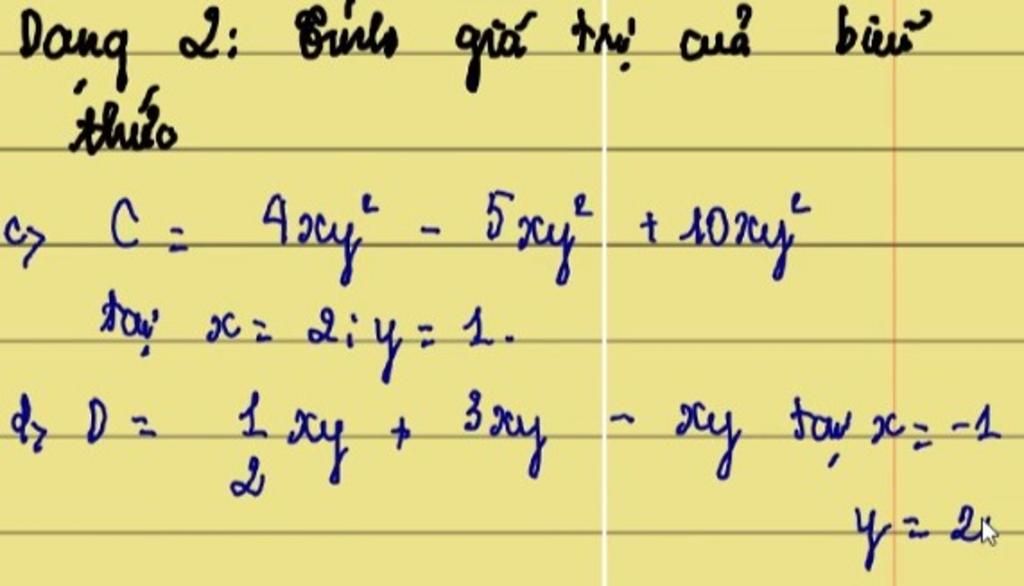 Dạng 2: Tính giá trị của biểu
thức
c> C = 4xy² - 5xy² + 10xy²
tại x = 2; y = 1.
d> D = 1/2 xy + 3xy - xy tại x = -1
y = 2.